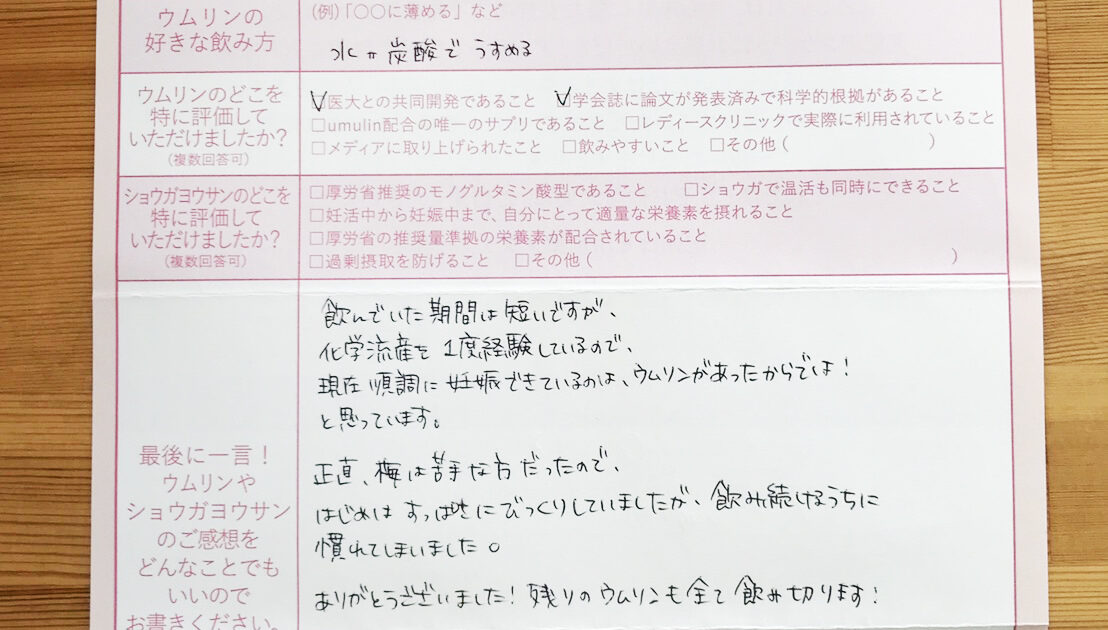 ウムリンの
好きな飲み方
(例)「○○に薄める」など
水や炭酸で うすめる
ウムリンのどこを
特に評価して
いただけましたか？
(複数回答可)
☑医大との共同開発であること ☑学会誌に論文が発表済みで科学的根拠があること
□umulin配合の唯一のサプリであること □レディースクリニックで実際に利用されていること
□メディアに取り上げられたこと □飲みやすいこと □その他( )
ショウガヨウサンのどこを
特に評価して
いただけましたか？
(複数回答可)
□厚労省推奨のモノグルタミン酸型であること □ショウガで温活も同時にできること
□妊活中から妊娠中まで、自分にとって適量な栄養素を摂れること
□厚労省の推奨量準拠の栄養素が配合されていること
□過剰摂取を防げること □その他( )
最後に一言！
ウムリンや
ショウガヨウサン
のご感想を
どんなことでも
いいので
お書きください。
飲んでいた期間は短いですが、
化学流産を1度経験しているので、
現在順調に妊娠できているのは、ウムリンがあったからでは！
と思っています。
正直、梅は苦手な方だったので、
はじめはすっぱさにびっくりしていましたが、飲み続けるうちに
慣れてしまいました。
ありがとうございました！残りのウムリンも全て飲み切ります！